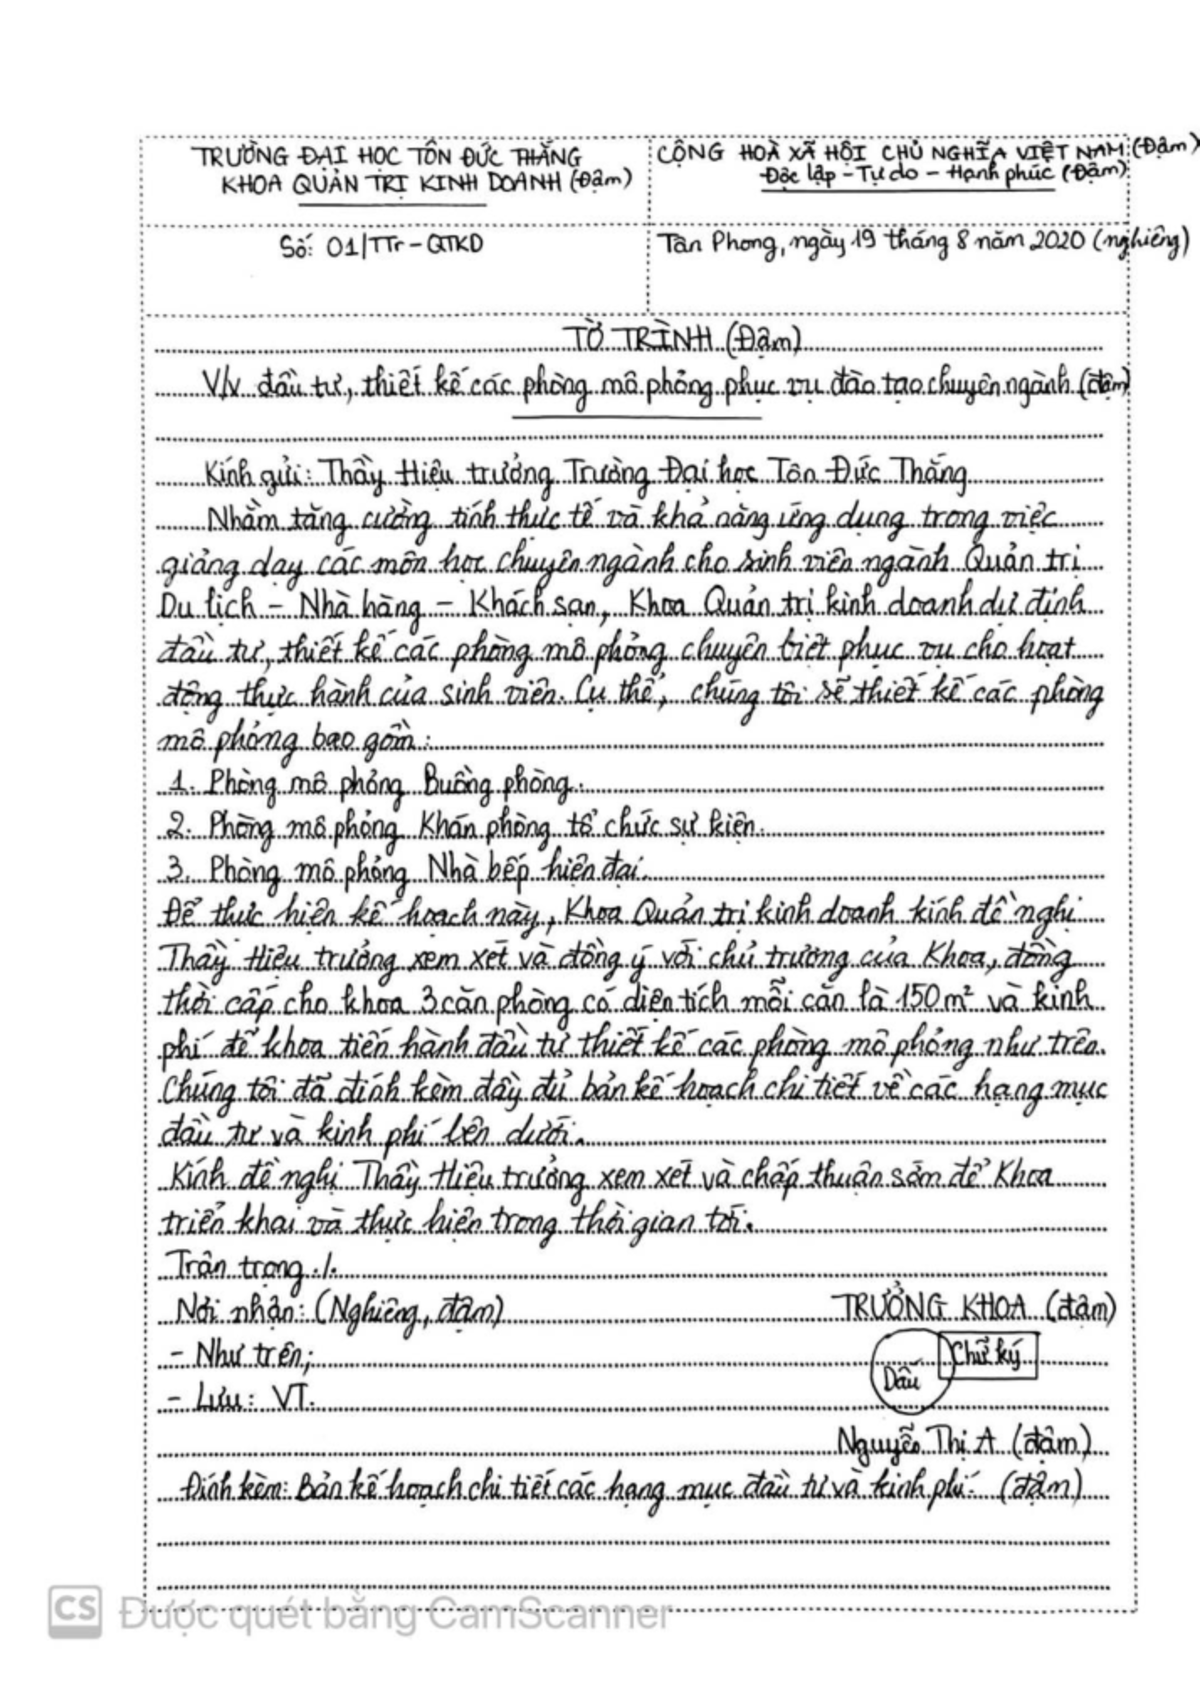 TRƯỜNG ĐẠI HỌC TÔN ĐỨC THẮNG
KHOA QUẢN TRỊ KINH DOANH (Đậm)
CỘNG HOÀ XÃ HỘI CHỦ NGHĨA VIỆT NAM (Đậm)
Độc lập - Tự do - Hạnh phúc (Đậm)
Số: 01/TTr - QTKD
Tân Phong, ngày 19 tháng 8 năm 2020 (nghiêng)
TỜ TRÌNH (Đậm)
V/v đầu tư, thiết kế các phòng mô phỏng phục vụ đào tạo chuyên ngành (đậm)
Kính gửi: Thầy Hiệu trưởng Trường Đại học Tôn Đức Thắng
Nhằm tăng cường tính thực tế và khả năng ứng dụng trong việc
giảng dạy các môn học chuyên ngành cho sinh viên ngành Quản trị
Du lịch - Nhà hàng - Khách sạn, Khoa Quản trị kinh doanh dự định
đầu tư, thiết kế các phòng mô phỏng chuyên biệt phục vụ cho hoạt
động thực hành của sinh viên. Cụ thể, chúng tôi sẽ thiết kế các phòng
mô phỏng bao gồm:
1. Phòng mô phỏng Buồng phòng.
2. Phòng mô phỏng Khán phòng tổ chức sự kiện.
3. Phòng mô phỏng Nhà bếp hiện đại.
Để thực hiện kế hoạch này, Khoa Quản trị kinh doanh kính đề nghị
Thầy Hiệu trưởng xem xét và đồng ý với chủ trương của Khoa, đồng
thời cấp cho khoa 3 căn phòng có diện tích mỗi căn là 150m² và kinh
phí để khoa tiến hành đầu tư thiết kế các phòng mô phỏng như trên.
Chúng tôi đã đính kèm đầy đủ bản kế hoạch chi tiết về các hạng mục
đầu tư và kinh phí bên dưới.
Kính đề nghị Thầy Hiệu trưởng xem xét và chấp thuận sớm để Khoa
triển khai và thực hiện trong thời gian tới.
Trân trọng ./.
Nơi nhận: (Nghiêng, đậm)
TRƯỞNG KHOA (đậm)
- Như trên;
Chữ ký
Dấu
- Lưu: VT.
Nguyễn Thị A (đậm)
Đính kèm: Bản kế hoạch chi tiết các hạng mục đầu tư và kinh phí. (đậm)
CS Được quét bằng CamScanner